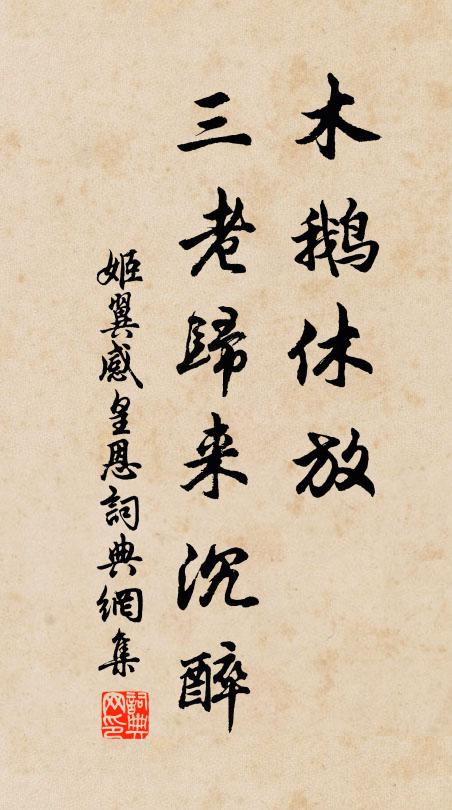 木鹅休放
三老歸来沉醉
姬翼感皇恩詞典網集
詞典网印